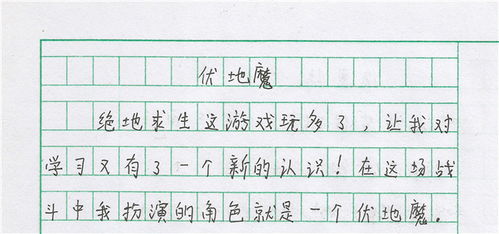 伏地魔
绝地求生这游戏玩多了，让我对
学习又有了一个新的认识！在这场战
斗中我扮演的角色就是一个伏地魔。